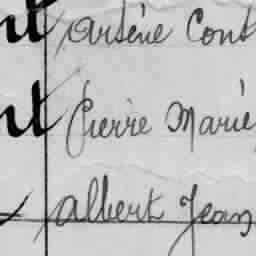 nt Arsène Cont
nt Pierre Marie
Albert Jean